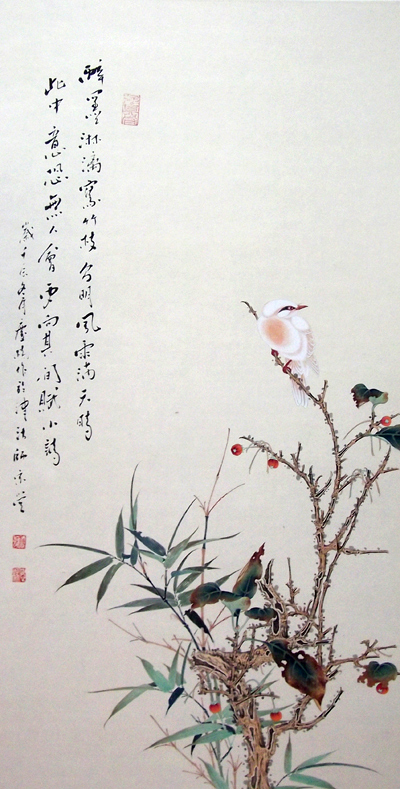 醉墨淋漓寫竹枝分明風雨滿天時
此中意恐無人會更向其間賦小詩
歲壬辰冬月作於津沽